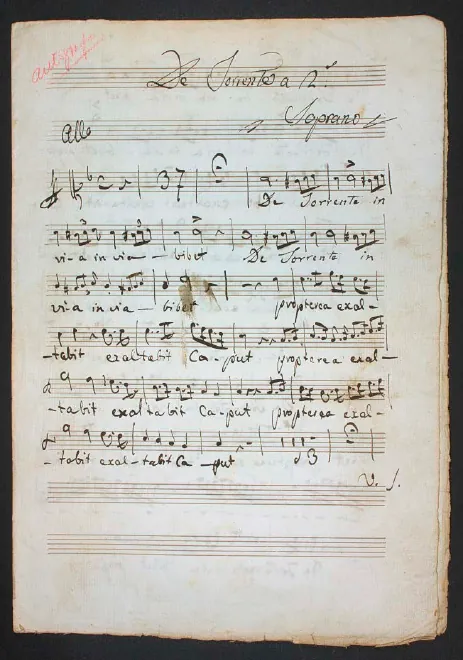 De Torrente a 2.
Soprano
Allo
37
De Torrente in
via in via - bibet De Torrente in
via in via - bibet propterea exal-
-tabit exaltabit Ca-put propterea exal-
-tabit exaltabit Ca-put propterea exal-
-tabit exal-tabit Ca-put 3
V. S.